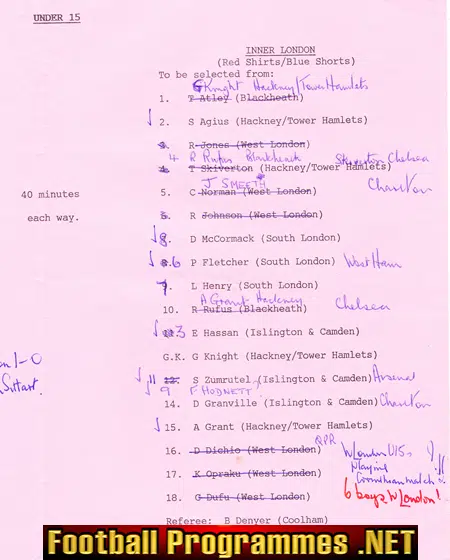 UNDER 15
INNER LONDON
(Red Shirts/Blue Shorts)
To be selected from:
G Knight Hackney/Tower Hamlets
1. T Atley (Blackheath)
2. S Agius (Hackney/Tower Hamlets)
3. R Jones (West London)
4 R Rufus Blackheath Skiverton Chelsea
4. T Skiverton (Hackney/Tower Hamlets)
J SMEETH
5. C Norman (West London) Charlton
40 minutes
6. R Johnson (West London)
each way.
8. D McCormack (South London)
6 P Fletcher (South London) West Ham
9. L Henry (South London)
A Grant Hackney
10. R Rufus (Blackheath) Chelsea
3 E Hassan (Islington & Camden)
1-0
G.K. G Knight (Hackney/Tower Hamlets)
11 12. S Zumrutel (Islington & Camden) Arsenal
9 F HODNETT
14. D Granville (Islington & Camden) Charlton
15. A Grant (Hackney/Tower Hamlets)
QPR
16. D Dichio (West London) W London U15s
17. K Opraku (West London) Playing
Corinthian match
18. G Dufu (West London) 6 boys W London!
Referee: B Denyer (Coolham)
Football Programmes .NET